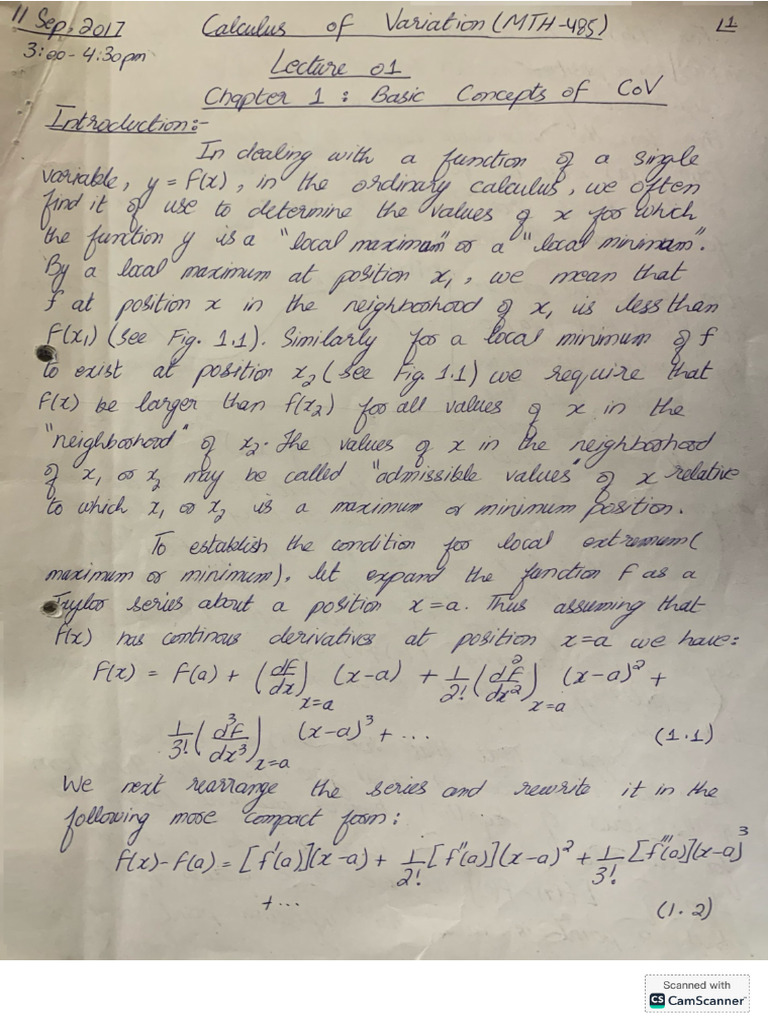 11 Sep, 2017 Calculus of Variation (MTH-485) 1
3:00-4:30pm
Lecture 01
Chapter 1 : Basic Concepts of CoV
Introduction:-
In dealing with a function of a single
variable, y = f(x), in the ordinary calculus, we often
find it of use to determine the values of x for which
the function y is a "local maximum" or a "local minimum".
By a local maximum at position x₁, we mean that
f at position x in the neighborhood of x₁ is less than
f(x₁) (see Fig. 1.1). Similarly for a local minimum of f
to exist at position x₂ (see Fig. 1.1) we require that
f(x) be larger than f(x₂) for all values of x in the
"neighborhood" of x₂. The values of x in the neighborhood
of x₁ or x₂ may be called "admissible values" of x relative
to which x₁ or x₂ is a maximum or minimum position.
To establish the condition for local extremum(
maximum or minimum), let expand the function f as a
Taylor series about a position x=a. Thus assuming that
f(x) has continous derivatives at position x=a we have:
f(x) = f(a) + (df/dx)ₓ₌ₐ (x-a) + 1/2! (d²f/dx²)ₓ₌ₐ (x-a)² +
1/3! (d³f/dx³)ₓ₌ₐ (x-a)³ + ... (1.1)
We next rearrange the series and rewrite it in the
following more compact form:
f(x)-f(a) = [f'(a)](x-a) + 1/2! [f''(a)](x-a)² + 1/3! [f'''(a)](x-a)³
+... (1.2)
Scanned with
CS CamScanner